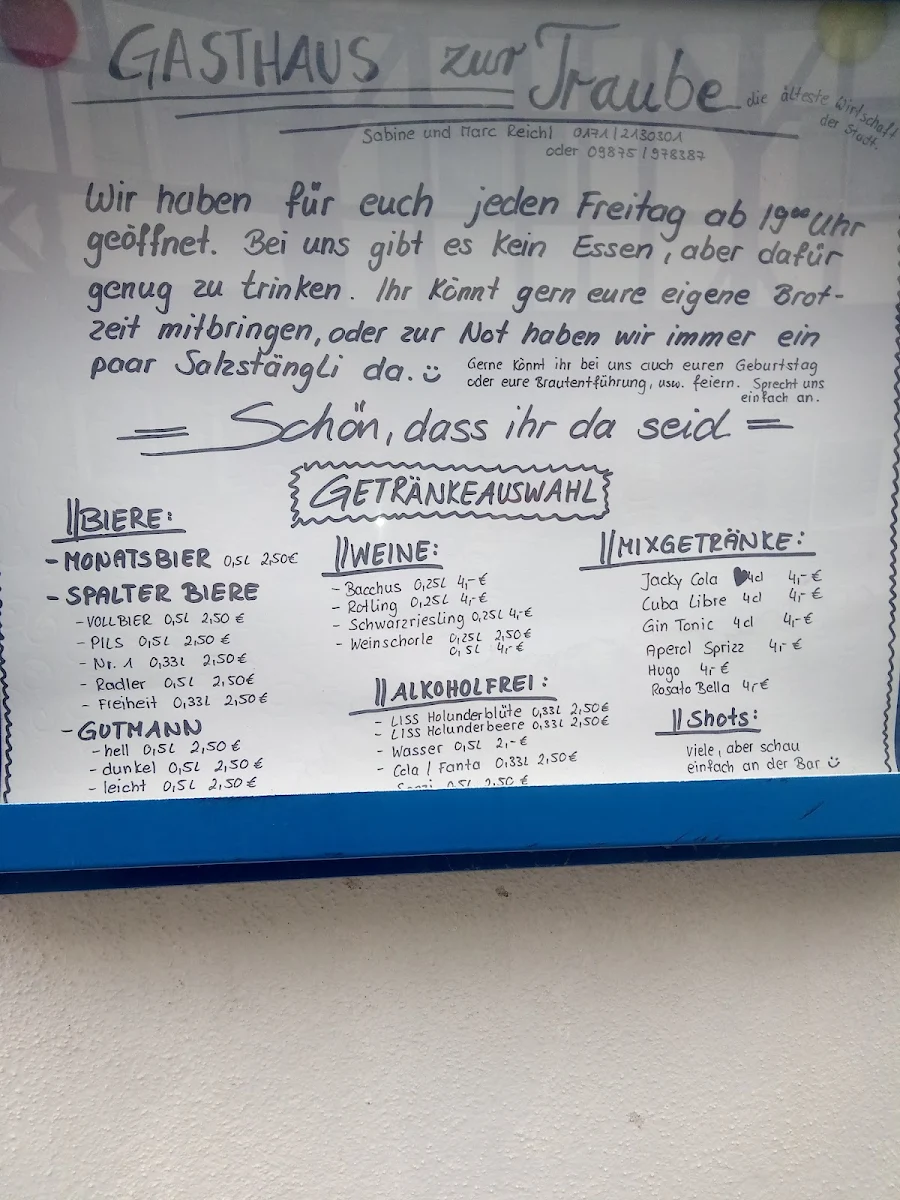 GASTHAUS zur Traube
die älteste Wirtschaft
der Stadt.
Sabine und Marc Reichl 0171/2130301
oder 09875/978387
Wir haben für euch jeden Freitag ab 19⁰⁰ Uhr
geöffnet. Bei uns gibt es kein Essen, aber dafür
genug zu trinken. Ihr könnt gern eure eigene Brot-
zeit mitbringen, oder zur Not haben wir immer ein
paar Salzstängli da.
Gerne könnt ihr bei uns auch euren Geburtstag
oder eure Brautentführung, usw. feiern. Sprecht uns
einfach an.
= Schön, dass ihr da seid =
GETRÄNKEAUSWAHL
||BIERE:
- MONATSBIER 0,5L 2,50€
- SPALTER BIERE
- VOLLBIER 0,5L 2,50 €
- PILS 0,5L 2,50€
- Nr. 1 0,33L 2,50€
- Radler 0,5L 2,50€
- Freiheit 0,33L 2,50€
- GUTMANN
- hell 0,5L 2,50€
- dunkel 0,5L 2,50€
- leicht 0,5L 2,50€
||WEINE:
- Bacchus 0,25L 4,-€
- Rotling 0,25L 4,-€
- Schwarzriesling 0,25L 4,-€
- Weinschorle 0,25L 2,50€
0,5L 4,-€
||ALKOHOLFREI:
- LISS Holunderblüte 0,33L 2,50€
- LISS Holunderbeere 0,33L 2,50€
- Wasser 0,5L 2,-€
- Cola / Fanta 0,33L 2,50€
0,5L 2,50 €
||MIXGETRÄNKE:
Jacky Cola 4cl 4,-€
Cuba Libre 4cl 4,-€
Gin Tonic 4cl 4,-€
Aperol Sprizz 4,-€
Hugo 4,-€
Rosato Bella 4,-€
||Shots:
Viele, aber schau
einfach an der Bar